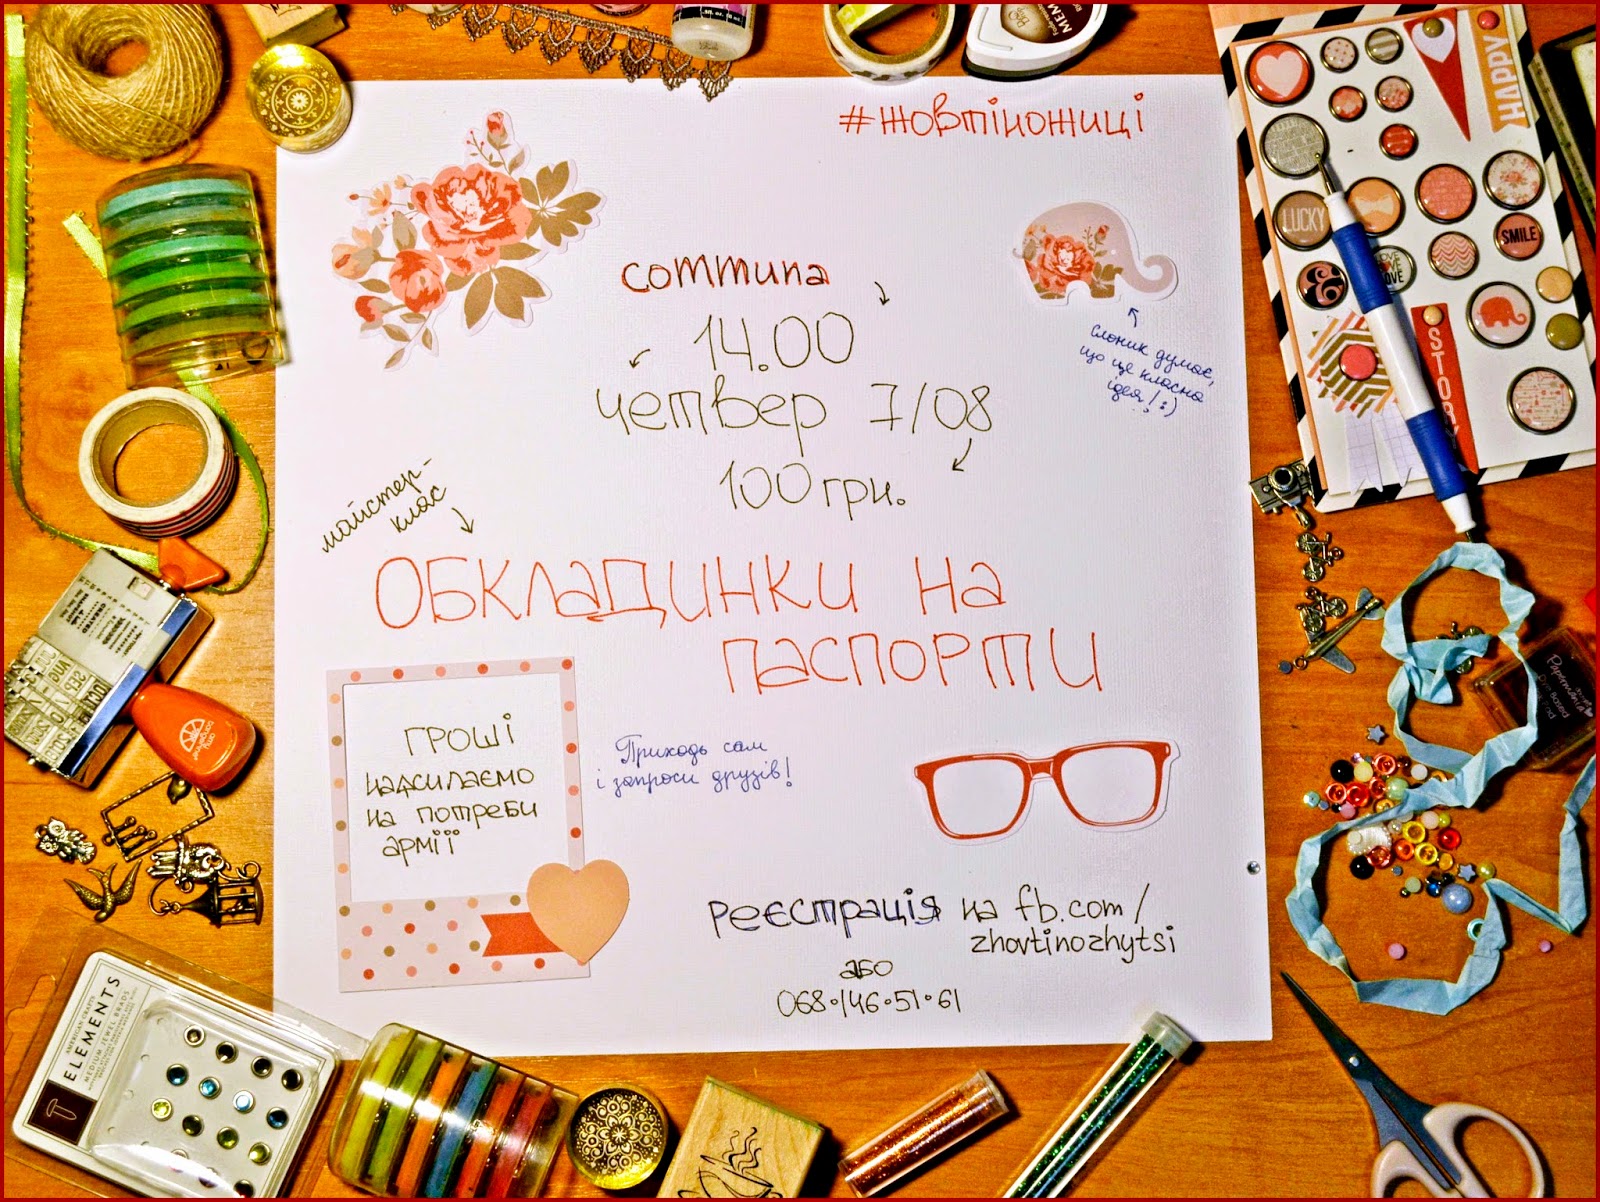 #жовтіножиці
соттипа
14.00
четвер 7/08
100 грн.
Слоник думає,
що це класна
ідея! :)
майстер-
клас
ОБКЛАДИНКИ НА
ПАСПОРТИ
ГРОШІ
НАДСИЛАЄМО
НА ПОТРЕБИ
АРМІЇ
Приходь сам
і запроси друзів!
РЕЄСТРАЦІЯ на fb.com/
zhovtinozhytsi
або
068·146·51·61
HAPPY
LUCKY
SMILE
LOVE
STORY
AMERICAN CRAFTS
ELEMENTS
MEDIUM JEWEL BRADS
Papermania